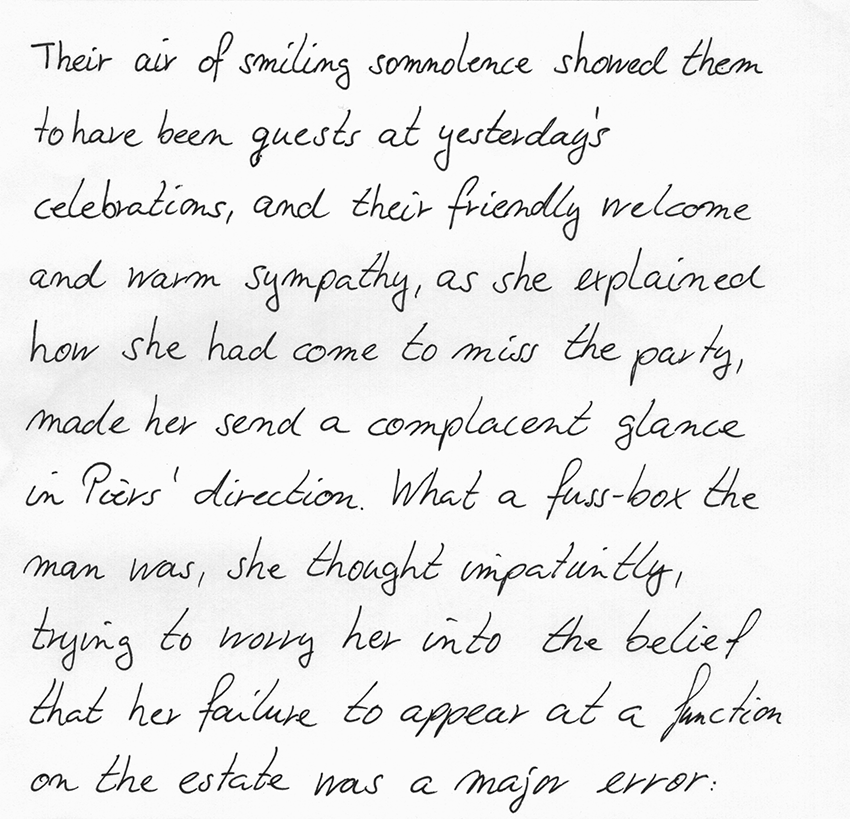 Their air of smiling somnolence showed them
to have been guests at yesterday's
celebrations, and their friendly welcome
and warm sympathy, as she explained
how she had come to miss the party,
made her send a complacent glance
in Piers' direction. What a fuss-box the
man was, she thought impatiently,
trying to worry her into the belief
that her failure to appear at a function
on the estate was a major error.